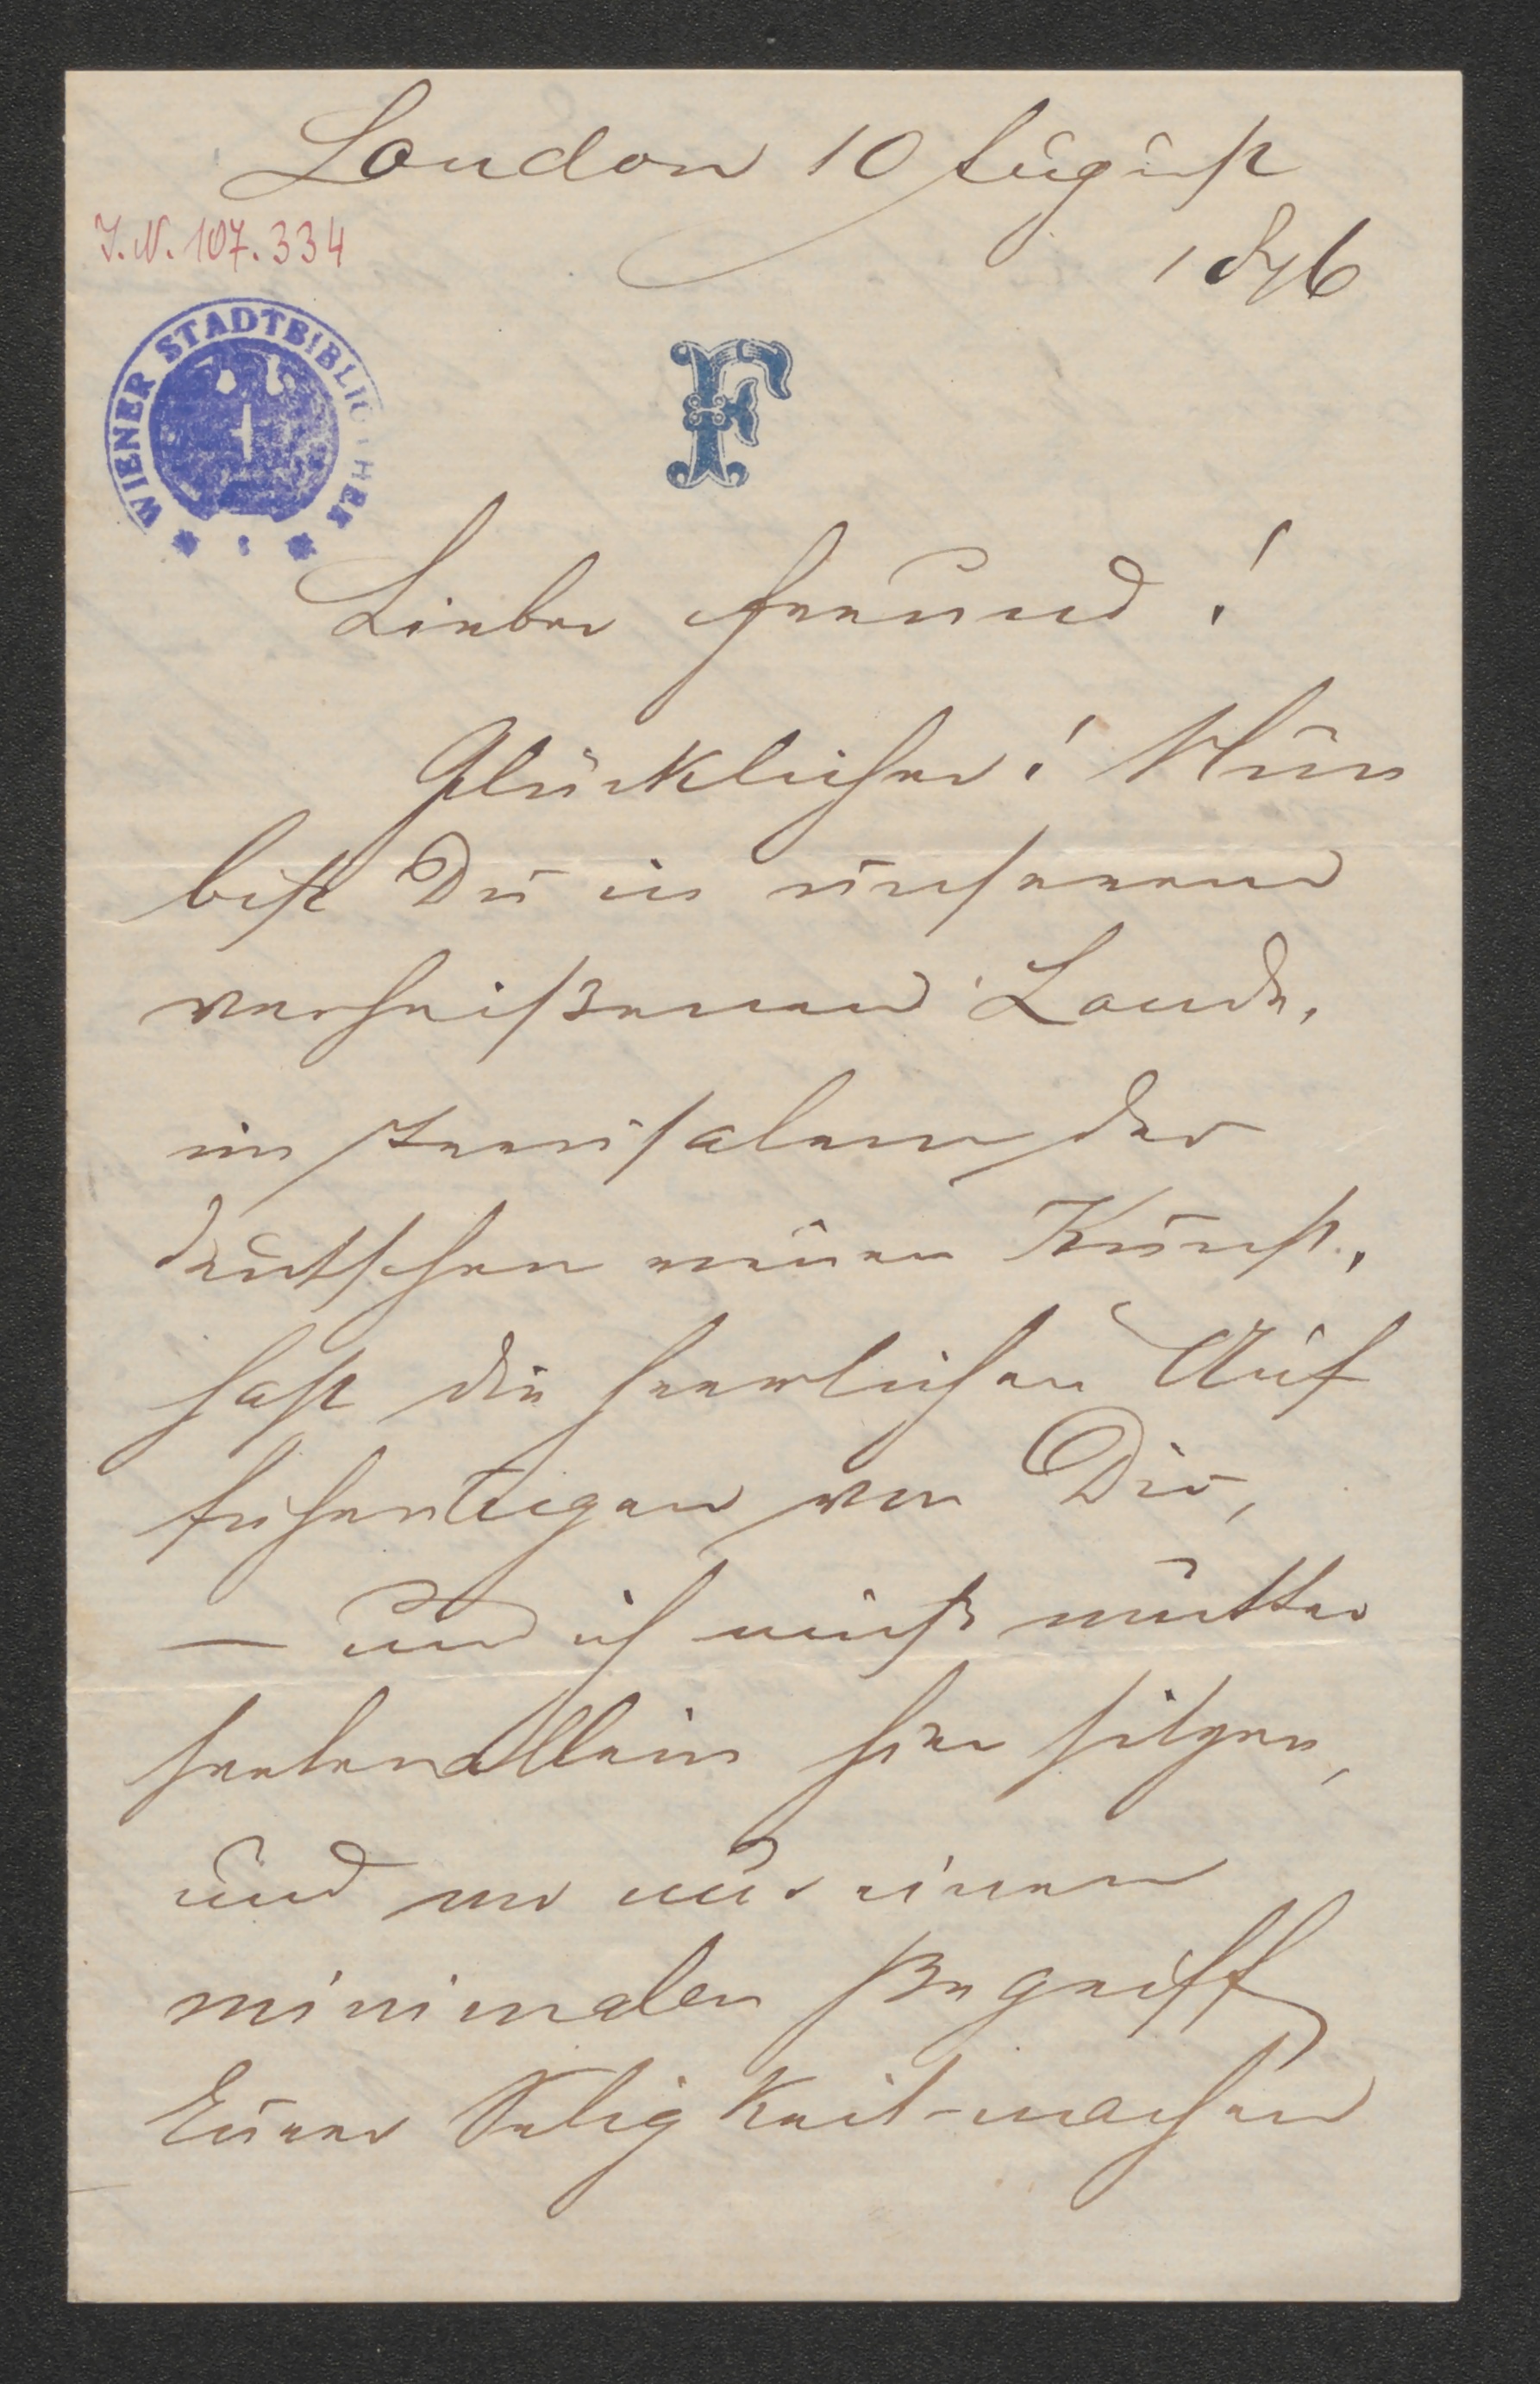 London 10 August
1876
I.N. 107.334
WIENER STADTBIBLIOTHEK
F
Lieber Freund!
Glücklicher! Nun
bist Du in unserem
verheißenen Lande,
im Jerusalem der
deutschen neuen Kunst,
hast die herrlichen Auf
führungen vor Dir,
— und ich muß mutter
seelenallein hier sitzen,
und nur einen
minimalen Begriff
Eurer Seligkeit machen